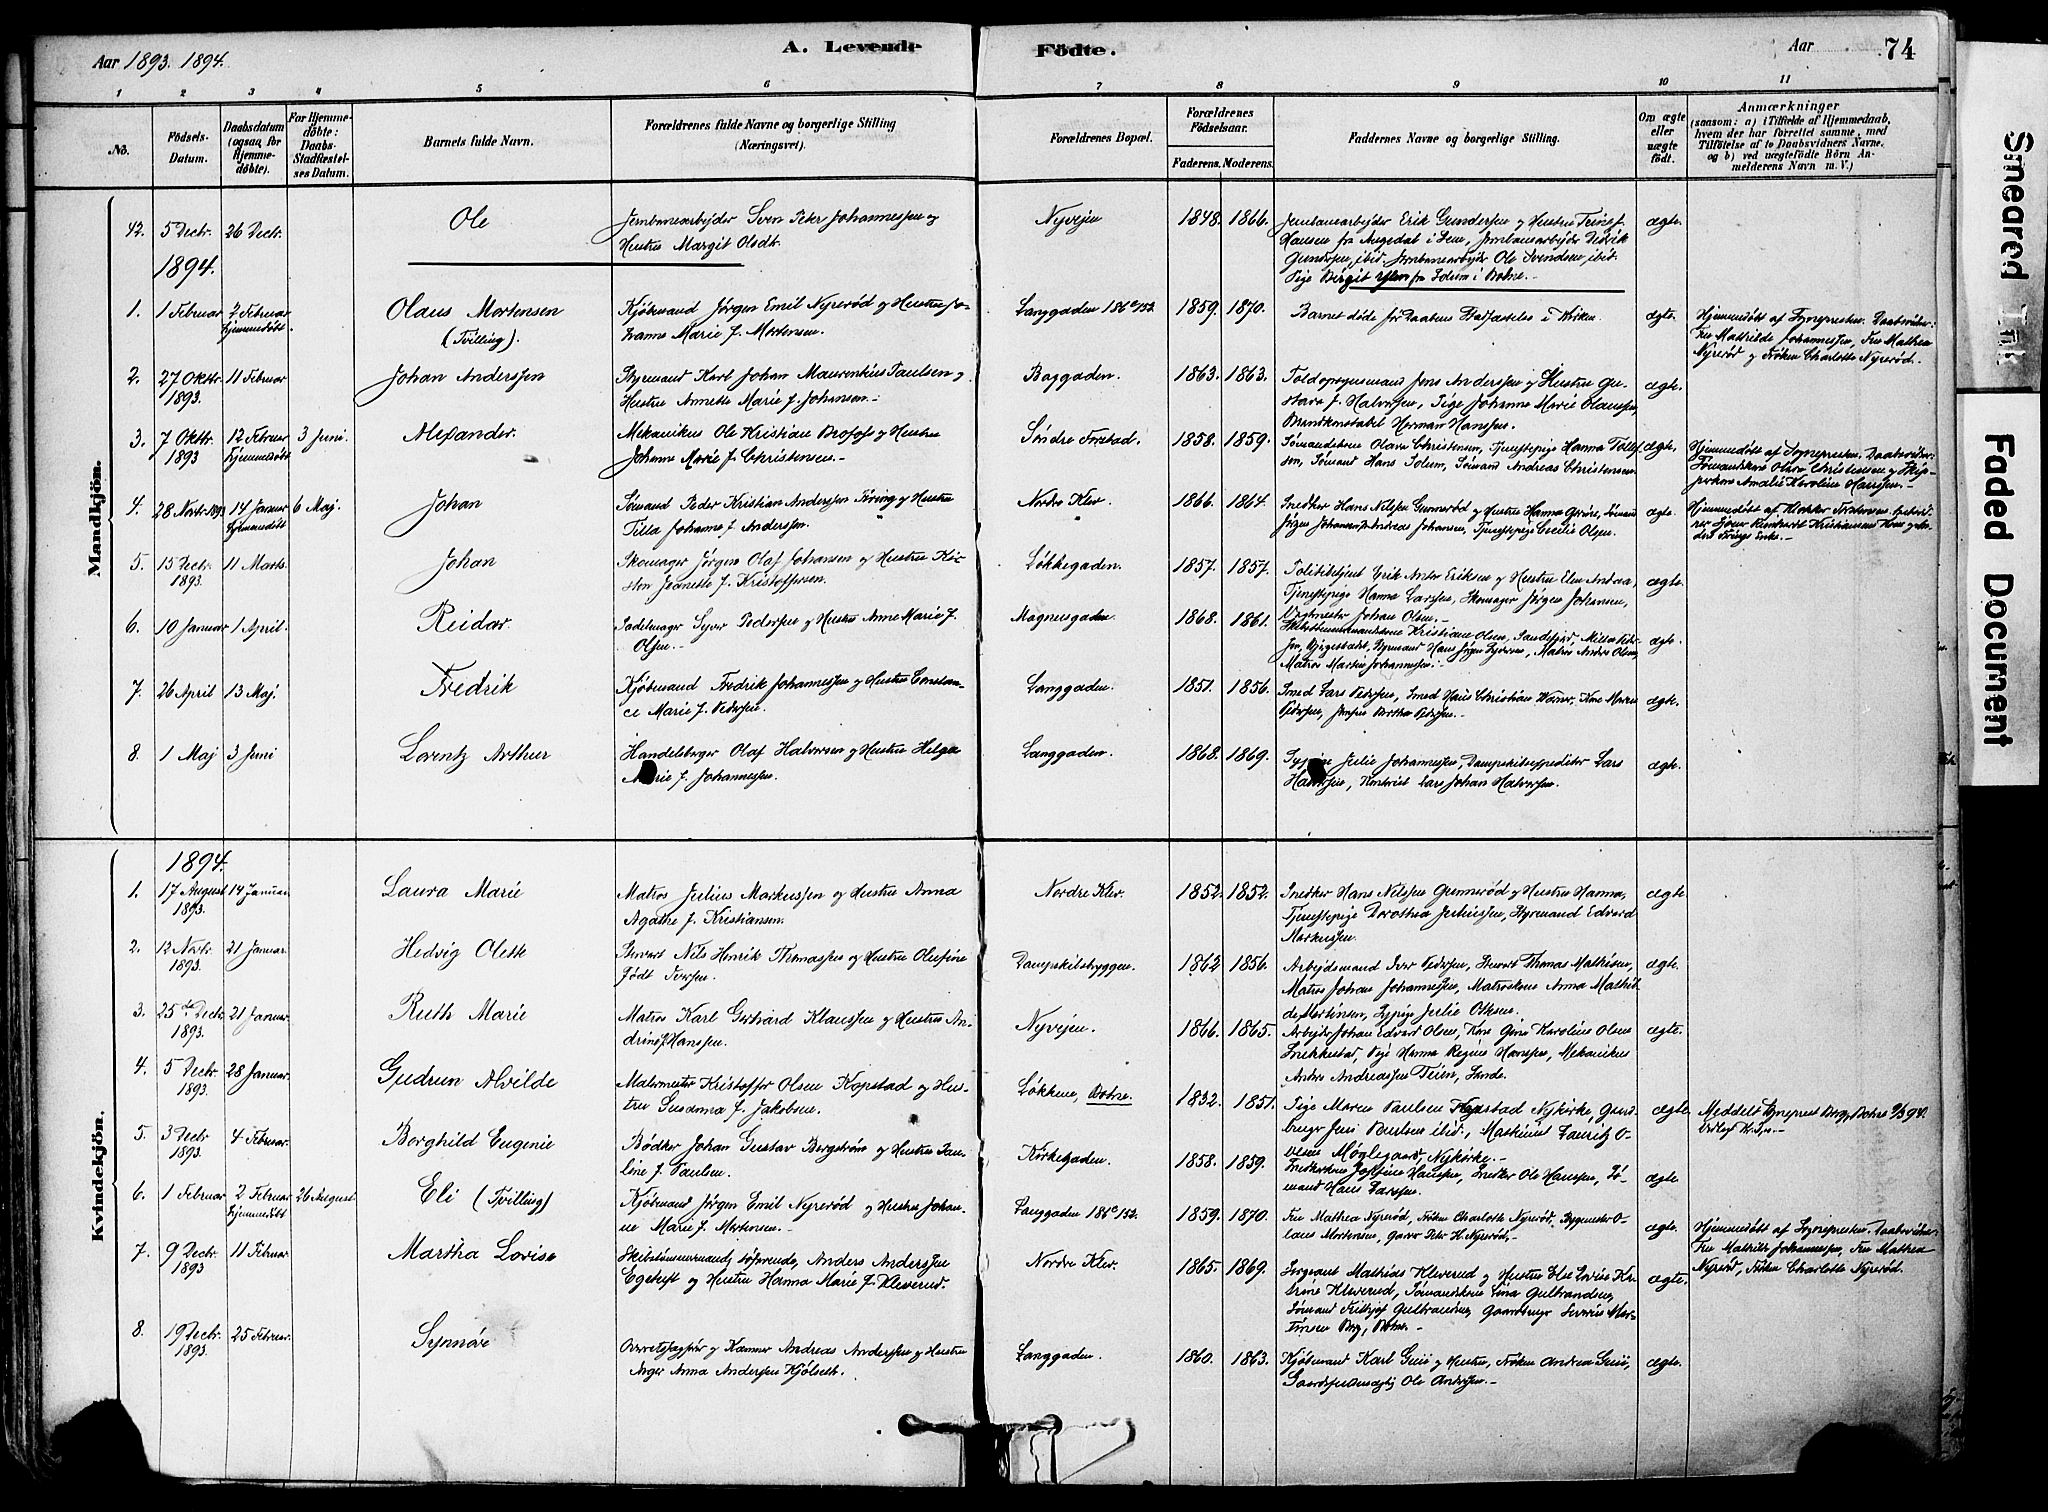 Aar 1893. 1894.
A. Levende
Födte.
Aar
74
1 2 3 4 5 6 7 8 9 10 11
No.
Födsels-Datum.
Daabsdatum (ogsaa for Hjemmedøbte).
For Hjemmedøbte: Daabs-Stadfæstelses Datum.
Barnets fulde Navn.
Forældrenes fulde Navne og borgerlige Stilling (Næringsvei).
Forældrenes Bopæl.
Forældrenes Födselsaar.
Faderens. Moderens.
Faddernes Navne og borgerlige Stilling.
Om ægte eller uægte født.
Anmærkninger (saasom: a) i Tilfælde af Hjemmedaab, hvem der har forrettet samme, med Tilföielse af to Daabsvidners Navne, og b) ved uægtefödte Börn Anmelderens Navn m. V.)
Mandkjön.
42. 5 Decbr. 26 Decbr. Ole
Jernbanearbejder Sven Peter Johannessen og
Hustru Margit Olsdtr.
Nyvejen 1848. 1866.
Jernbanearbejder Erik Gundersen og Hustru
Gundersen, ibid. Jernbanearbejder Ole Svendsen, ibid.
ægte.
1894.
1. 1 Februar 2 Februar hjemmedøbt. Olaus Mortensen (Tvilling).
Kjøbmand Jørgen Emil Nyrerød og Hustru Jo-
hanne Marie f. Mortensen.
Langgaden 186 c/152. 1859. 1870.
Barnet døde før Daabens Stadfæstelse i Kirken.
ægte.
Hjemmedøbt af Sognepresten. Daabsvidner:
Fru Mathilde Johannessen, Fru Mathea
Nyrerød og Frøken Charlotte Nyrerød.
2. 27 Oktbr. 1893. 11 Februar Johan Anderssen
Styrmand Karl Johan Maurentius Paulsen og
Hustru Annette Marie f. Johansen.
Baggaden. 1863. 1863.
Toldopsynsmand Jens Anderssen og Hustru Gu-
stava f. Halvorsen, Pige Johanne Marie Olaussen,
Brandkonstabel Herman Hanssen.
ægte.
3. 7 Oktbr. 1893 12 Februar hjemmedøbt 3 Juni. Alexander.
Mekanikus Ole Kristian Brofos og Hustru
Johanne Marie f. Christensen.
Søndre Frestad. 1858. 1859.
Sømandskone Olava Christensen, Tjenestepige Hanna Tollef-
sen, Sømand Hans Solum, Sømand Andreas Christensen
ægte.
Hjemmedøbt af Sognepresten. Daabsvidner:
Sømandskone Olava Christensen og Skip-
perkone Amalie Karoline Hanssen.
4. 28 Novbr. 1893 14 Januar hjemmedøbt 6 Maj. Johan
Sømand Peder Kristian Anderssen Føring og Hustru
Tilla Johanne f. Anderssen.
Nordre Klev. 1866. 1864.
Snedker Hans Nilssen Gunnerød og Hustru Hanna
Johansen, Tjenestepige Cecilie Olsen.
ægte.
Hjemmedøbt af Klokker
5. 15 Decbr. 1893. 11 Marts. Johan
Skomager Jørgen Olaf Johansen og Hustru Kir-
sten Jeanette f. Kristoffersen.
Løkkegaden. 1857. 1857.
Politibetjent Erik Anton Eriksen og Hustru Elen Andrea,
Tjenestepige Hanna Larssen, Skomager Jørgen Johansen,
Johan Olsen.
ægte.
6. 10 Januar 1 April. Reidar
Sadelmager Syver Pedersen og Hustru Anne Marie f.
Olsen.
Magnusgaden. 1868. 1861.
Kristiane Olsen, Sandefjord,
Styrmand Hans Jørgen Matros Anders Olsen,
Matros Martin Johannessen.
ægte.
7. 26 April 13 Maj. Fredrik
Kjøbmand Fredrik Johannessen og Hustru Constan-
ce Marie f. Pedersen.
Langgaden. 1851. 1856.
Smed Lars Pedersen, Smed Hans Christian Werner, Kone Maren
Pedersen, Jomfru Bertha Pedersen.
ægte.
8. 1 Maj 3 Juni Lorentz Arthur
Handelsborger Olaf Halvorsen og Hustru Helga
Marie f. Johannessen.
Langgaden. 1868. 1869.
Julie Johannessen, Dampskibsexpeditør Lars
Halvorsen, Kontorist Lars Johan Halvorsen.
ægte.
Kvindekjön.
1894.
1. 17 August 1893. 14 Januar Laura Marie
Matros Julius Markussen og Hustru Anna
Agathe f. Kristiansen.
Nordre Klev. 1852. 1852.
Snedker Hans Nilssen Gunnerød og Hustru Hanna,
Tjenestepige Dorothea Juliussen, Styrmand Edvard
Markussen.
ægte.
2. 12 Novbr. 1893. 21 Januar. Hedvig Olette
Stuert Nils Henrik Thomassen og Hustru Olefine
født Iversen.
Dampskibsbryggen. 1862 1856.
Arbejdsmand Iver Pedersen, Stuert Thomas Mathisen,
Matros Johan Johannessen, Matroskone Anna Mathil-
de Mortensen, Sypige Julie Olsen.
ægte.
3. 25de Decbr. 1893. 21 Januar Ruth Marie
Matros Karl Gerhard Klaussen og Hustru An-
drine f. Hanssen.
Nyvejen. 1866. 1865.
Arbejder Johan Edvard Olsen, Kone Gina Karoline Olsen
Snekkestad, Pige Hanna Regine Hanssen, Mekanikus
Anton Andreassen Teien, Sande.
ægte.
4. 5 Decbr. 1893. 28 Januar. Gudrun Alvilde
Malermester Kristoffer Olsen Kopstad og Hus-
tru Susanna f. Jakobsen.
Løkken, Botne. 1832. 1851.
Pige Maren Paulsen Kopstad Nykirke, Gaard-
bruger Jens Paulsen ibid., Maskinist Lauritz O-
lsen Møglegaard, Nykirke.
ægte.
Meddelt Sognepresten Botne
5. 3 Decbr. 1893. 4 Februar. Borghild Eugenie
Bødker Johan Gustav Bergstrøm og Hustru Pau-
line f. Paulsen.
Kirkegaden. 1858. 1859.
Snedkerkone Josefine Hanssen, Snedker Ole Hanssen, Sø-
mand Hans Larssen.
ægte
6. 1 Februar 2 Februar hjemmedøbt 26 August Eli (Tvilling)
Kjøbmand Jørgen Emil Nyrerød og Hustru Johan-
ne Marie f. Mortensen.
Langgaden 186 c/152. 1859. 1870.
Fru Mathea Nyrerød, Frøken Charlotte Nyrerød, Bygmester O-
laus Mortensen, garver Peter H. Nyrerød.
ægte.
Hjemmedøbt af Sognepresten. Daabsvidner:
Fru Mathilde Johannessen, Fru Mathea
Nyrerød, Frøken Charlotte Nyrerød.
7. 9 Decbr. 1893 11 Februar. Martha Lovise
Skibstømmermand, søfarende, Anders Anderssen
Egetuft og Hustru Hanna Marie f. Kleverud.
Nordre Klev. 1865. 1869.
Sergeant Mathias Kleverud og Hustru Else Lovise Ka-
trine Kleverud, Sømandskone Lina Gulbrandsen,
Sømand Fritjof Gulbrandsen, Gaardbruger Severin Mar-
tinsen Berg, Botne.
ægte.
8. 19 Decbr. 1893. 25 Februar. Synnöve
Overretssagfører og Kæmner Andreas Anderssen og Hustru
Inger Anna Anderssen Kjølseth.
Langgaden. 1860. 1863.
Kjøbmand Karl Guii og Hustru, Frøken Andrea Guii,
Ole Anderssen.
ægte.
Smeared Ink
Faded Document